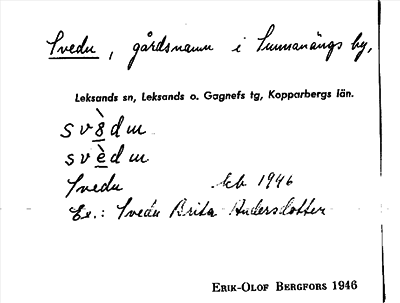 Svedu, gårdsnamn i Sunnanängs by,
Leksands sn, Leksands o. Gagnefs tg, Kopparbergs län.
svèdu
Svedu 1946
Ex.: Svedu Brita Andersdotter
ERIK-OLOF BERGFORS 1946